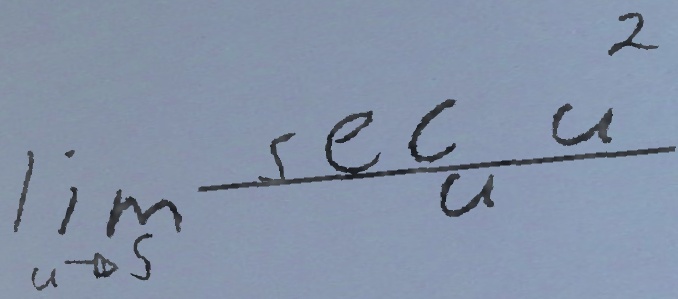 lim_{u→5} \frac{sec u^2}{u}